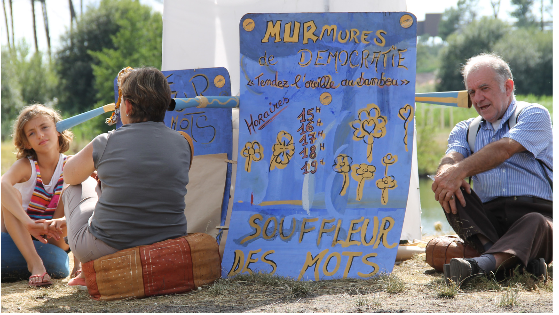 MURMURES
de DÉMOCRATIE
« Tendez l'oreille au bambou »
Horaires
15H
16H
17H
18H
19H
SOUFFLEUR
DES MOTS